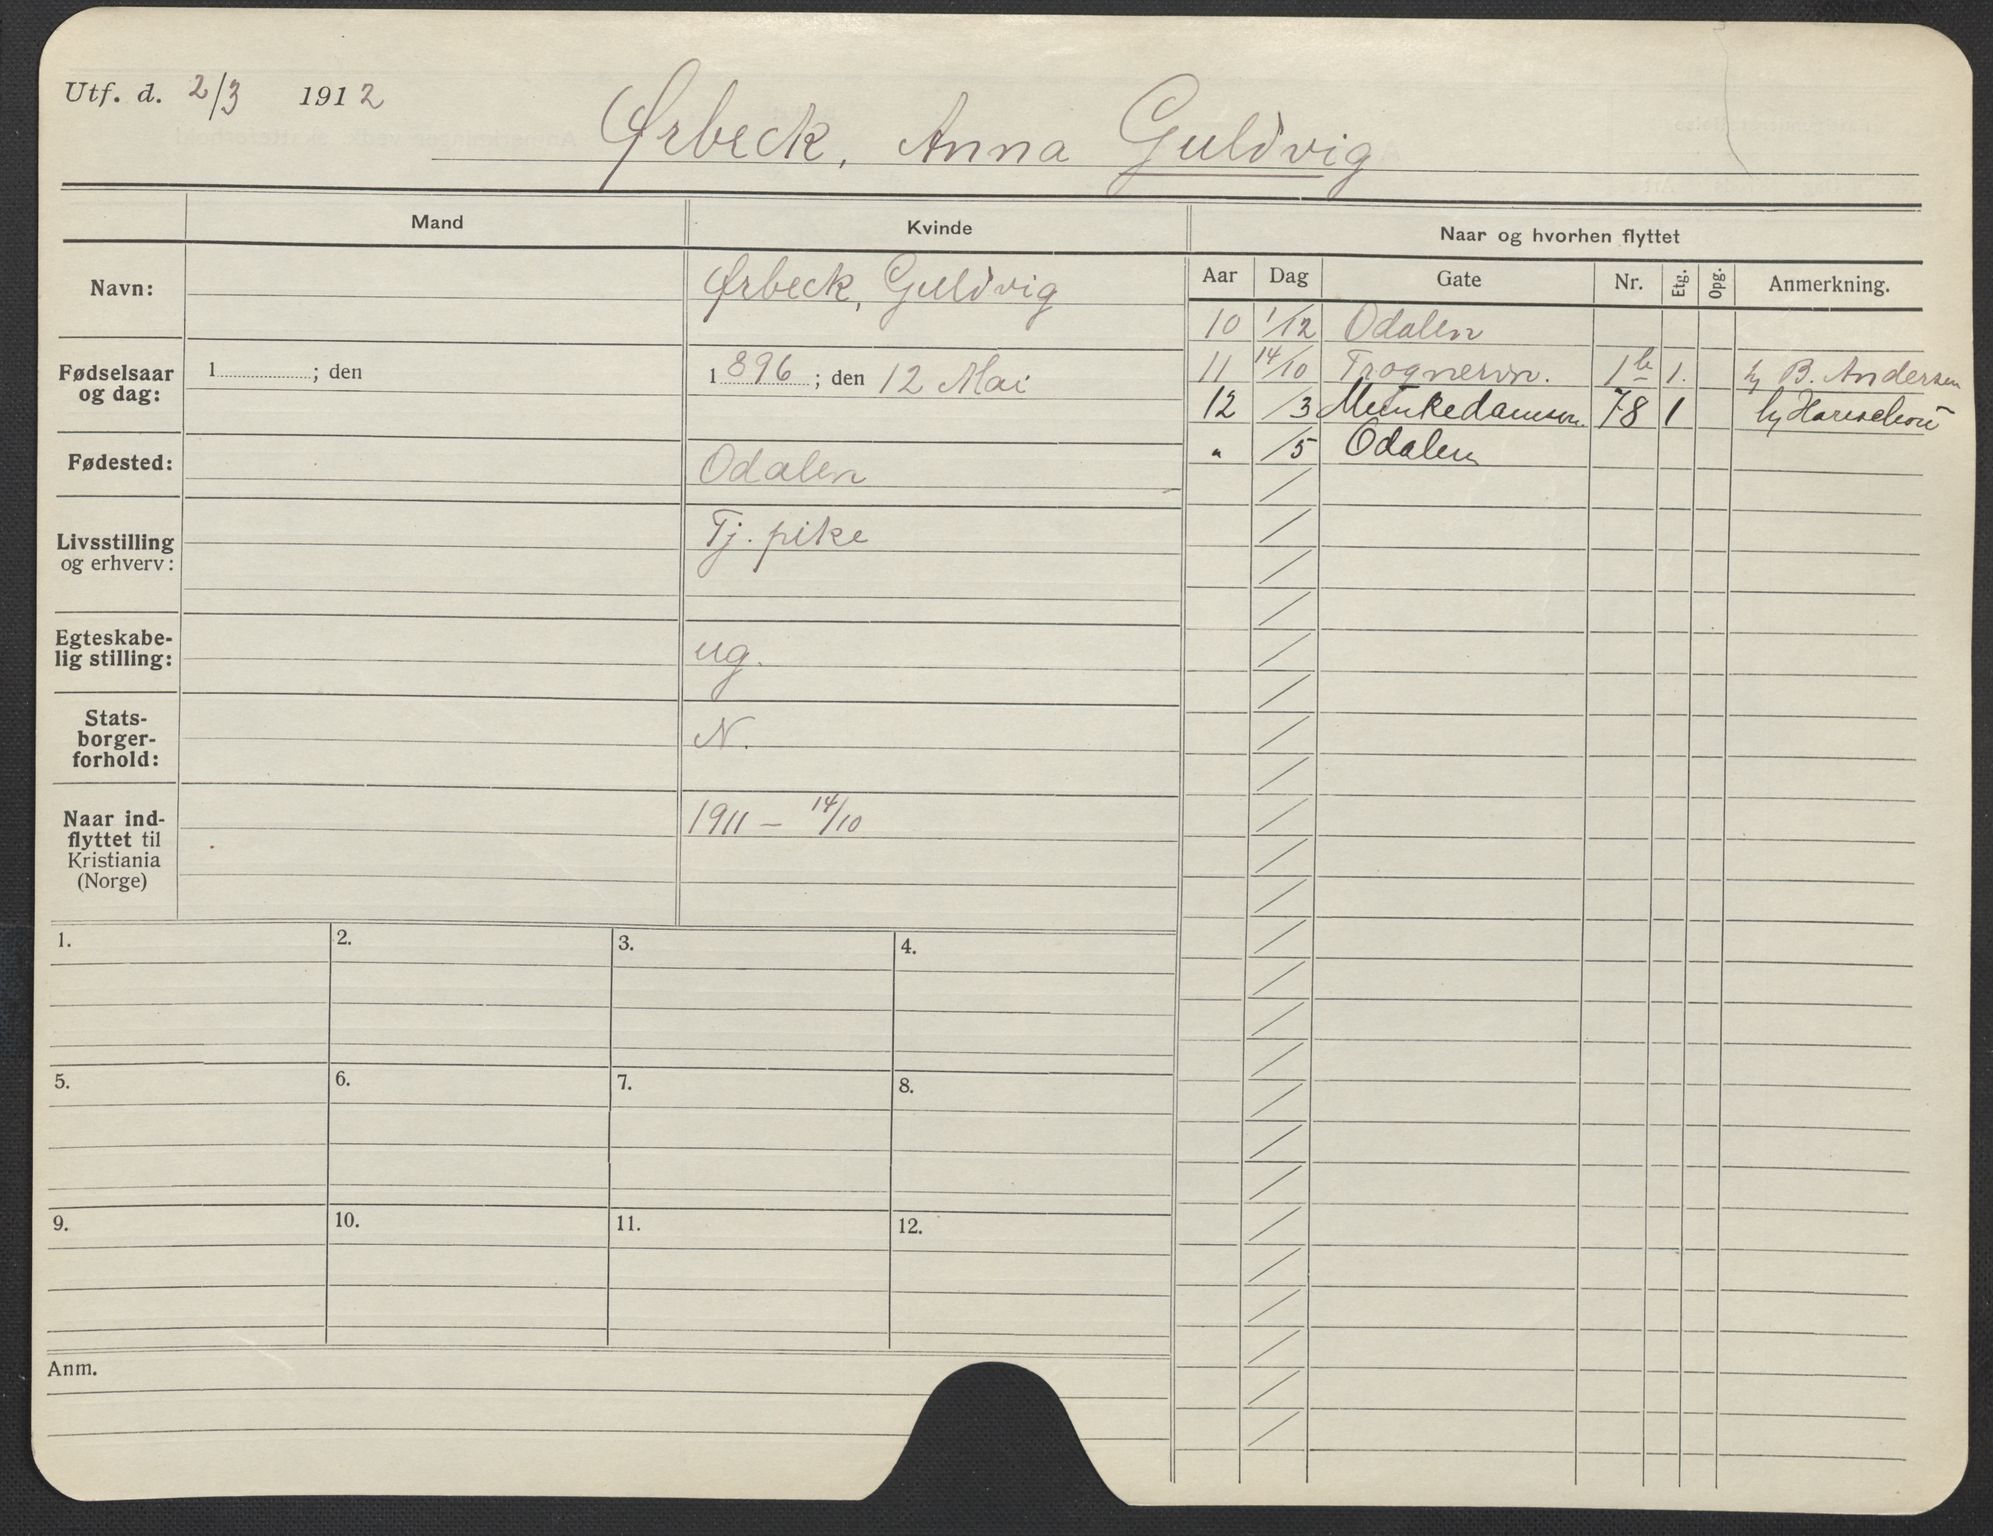 Utf. d. 2/3 1912
Ørbeck, Anna Guldvig
Mand Kvinde Naar og hvorhen flyttet
Navn: Ørbeck, Guldvig
Fødselsaar og dag: 1 ; den 1896 ; den 12 Mai
Fødested: Odalen
Livsstilling og erhverv: Tj. pike
Egteskabe-
lig stilling: ug.
Stats-
borger-
forhold: N.
Naar ind-
flyttet til
Kristiania
(Norge) 1911 — 14/10
Aar Dag Gate Nr. Etg. Opg. Anmerkning.
10 1/12 Odalen
11 14/10 Trognervn. 1b 1. hj B. Andersen
12 /3 Munkedamsvn. 78 1 hj
" /5 Odalen
1. 2. 3. 4.
5. 6. 7. 8.
9. 10. 11. 12.
Anm.